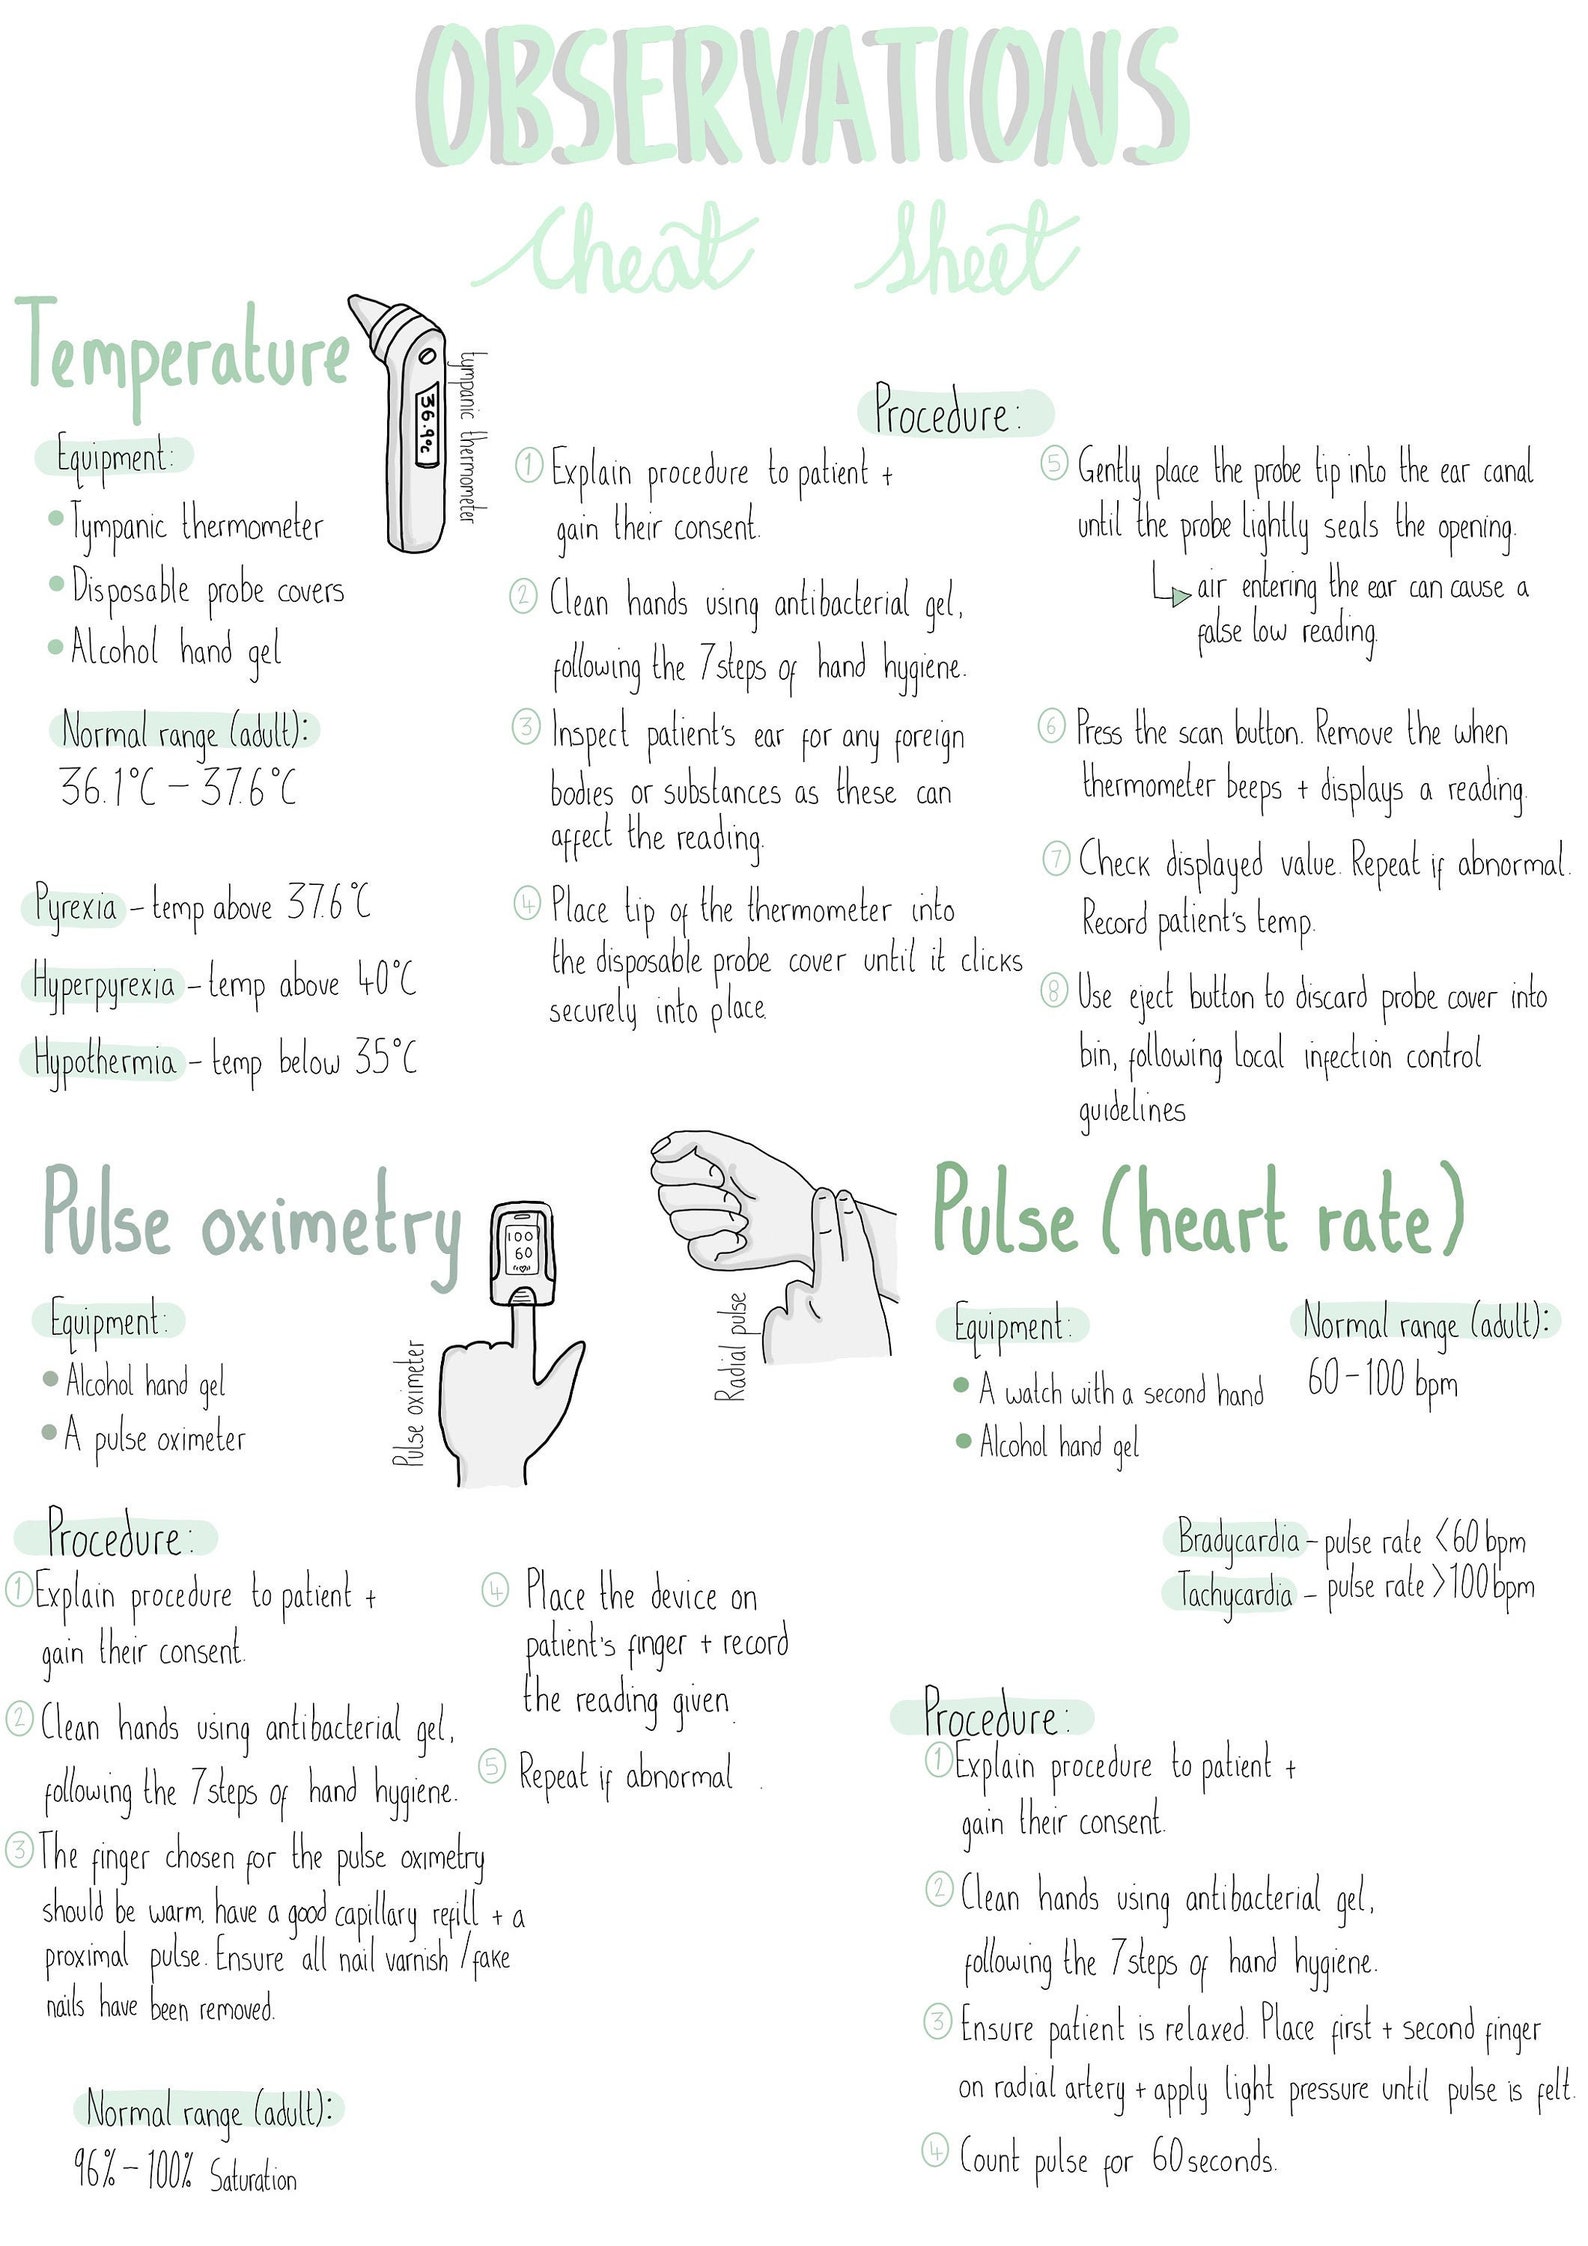 OBSERVATIONS
Cheat Sheet
Temperature
36.9°C
tympanic thermometer
Equipment:
• Tympanic thermometer
• Disposable probe covers
• Alcohol hand gel
Normal range (adult):
36.1°C – 37.6°C
Pyrexia – temp above 37.6°C
Hyperpyrexia – temp above 40°C
Hypothermia – temp below 35°C
Procedure:
① Explain procedure to patient +
gain their consent.
② Clean hands using antibacterial gel,
following the 7 steps of hand hygiene.
③ Inspect patient's ear for any foreign
bodies or substances as these can
affect the reading.
④ Place tip of the thermometer into
the disposable probe cover until it clicks
securely into place.
⑤ Gently place the probe tip into the ear canal
until the probe lightly seals the opening.
air entering the ear can cause a
false low reading.
⑥ Press the scan button. Remove the when
thermometer beeps + displays a reading.
⑦ Check displayed value. Repeat if abnormal.
Record patient's temp.
⑧ Use eject button to discard probe cover into
bin, following local infection control
guidelines
Pulse oximetry
100
60
Pulse oximeter
Equipment:
• Alcohol hand gel
• A pulse oximeter
Procedure:
① Explain procedure to patient +
gain their consent.
② Clean hands using antibacterial gel,
following the 7 steps of hand hygiene.
③ The finger chosen for the pulse oximetry
should be warm, have a good capillary refill + a
proximal pulse. Ensure all nail varnish / fake
nails have been removed.
④ Place the device on
patient's finger + record
the reading given.
⑤ Repeat if abnormal.
Normal range (adult):
96% – 100% Saturation
Radial pulse
Pulse (heart rate)
Equipment:
• A watch with a second hand
• Alcohol hand gel
Normal range (adult):
60 – 100 bpm
Bradycardia – pulse rate <60 bpm
Tachycardia – pulse rate >100 bpm
Procedure:
① Explain procedure to patient +
gain their consent.
② Clean hands using antibacterial gel,
following the 7 steps of hand hygiene.
③ Ensure patient is relaxed. Place first + second finger
on radial artery + apply light pressure until pulse is felt.
④ Count pulse for 60 seconds.